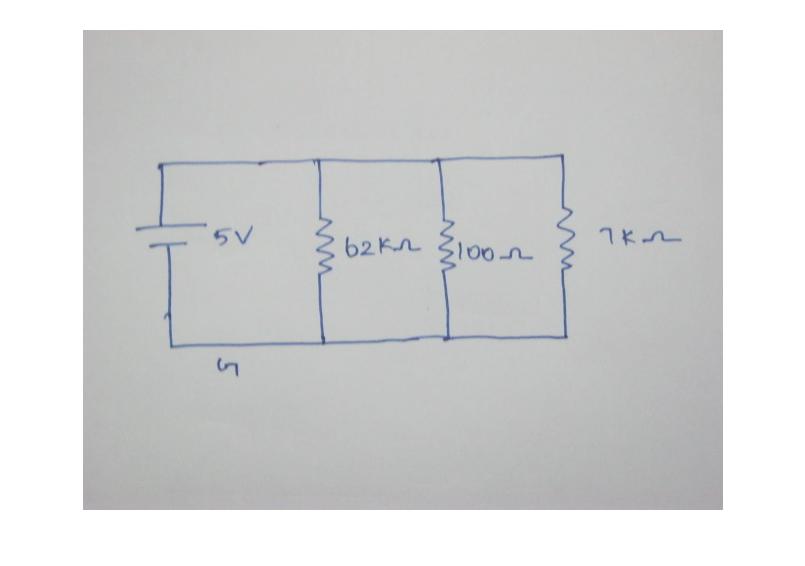 5V
62KΩ
100Ω
7KΩ